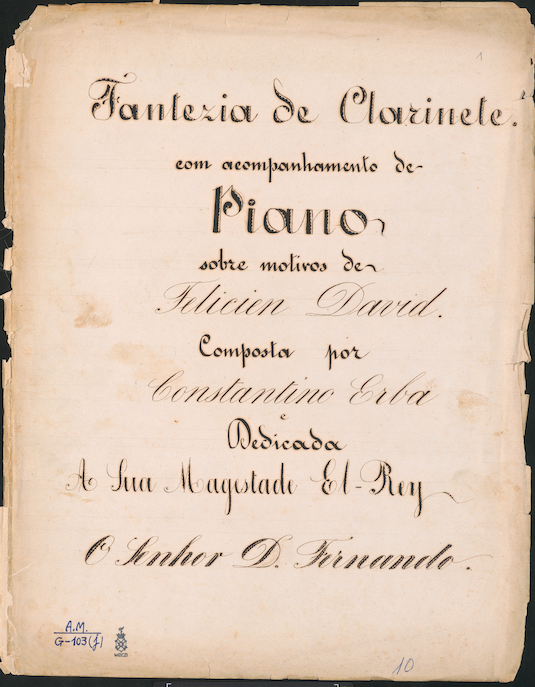 1
Fantezia de Clarinete.
com acompanhamento de
Piano
sobre motivos de
Felicien David.
Composta por
Constantino Erba
e
Dedicada
A Sua Magestade El-Rey
O Senhor D. Fernando.
A.M.
G-103(j)
10